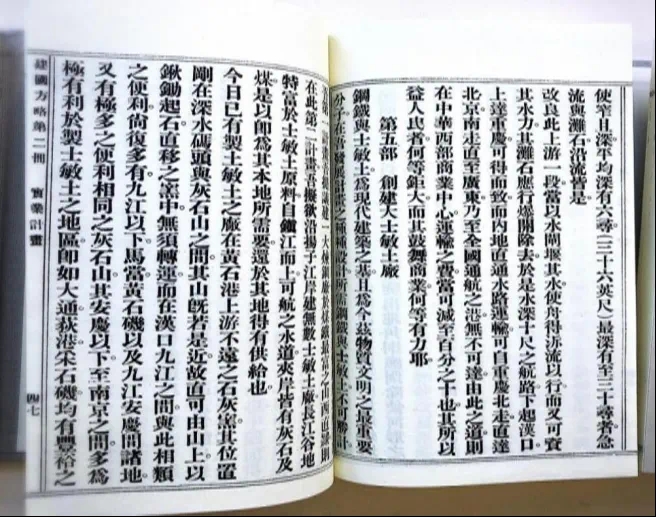 使窄且深平均深有六尋(三十六英尺)最深有至三十尋者急
流與灘石沿流皆是
改良此上游一段當以水閘堰其水使舟得泝流以行而又可資
其水力其灘石應行爆開除去於是水深十尺之航路下起漢口
上達重慶可得而致而內地直通水路運輸可自重慶北走直達
北京南走直至廣東乃至全國通航之港無不可達由此之道則
在中華西部商業中心運輸之費當可減至百分之十也其所以
益人民者何等鉅大而其鼓舞商業何等有力耶
第五部 創建大士敏土廠
鋼鐵與士敏土爲現代建築之基且爲今茲物質文明之最重要
分子在吾發展計畫之種種設計所需鋼鐵與士敏土不可勝計
建一大煉鋼廠於
在此第二計畫吾擬欲沿揚子江岸建無數士敏土廠長江谷地
特富於士敏土原料自鎮江而上可航之水道夾岸皆有灰石及
煤是以即爲其本地所需要還於其地得有供給也
今日已有製士敏土之廠在黃石港上游不遠之石灰窰其位置
剛在深水碼頭與灰石山之間其山既若是近故直可由山上以
鍬鋤起石直移之窰中無須轉運而在漢口九江之間與此相類
之便利尚復多有九江以下馬當黃石磯以及九江安慶間諸地
又有極多之便利相同之灰石山其安慶以下至南京之間多爲
極有利於製士敏土之地區即如大通荻港采石磯均有豐裕之
建國方略第二冊 實業計畫 四七